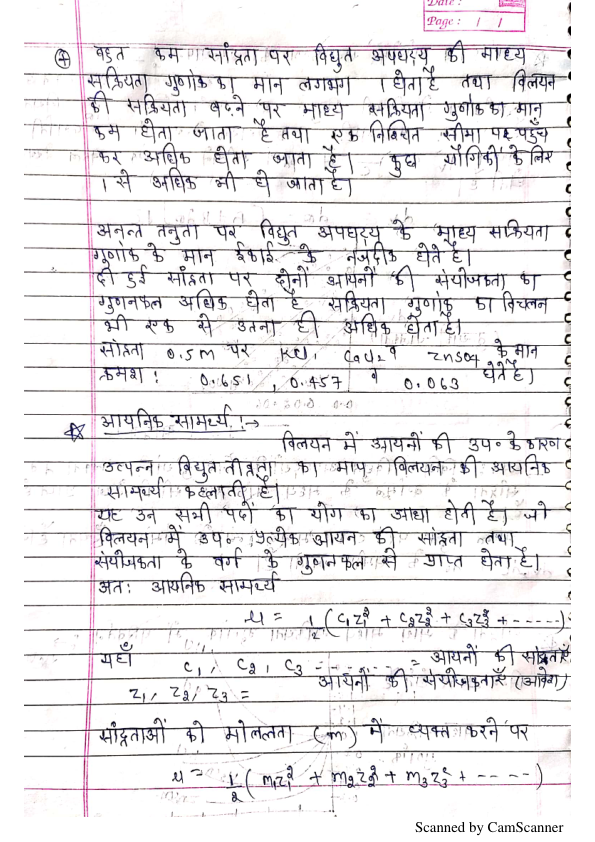 Date :
Page : / /
④ बहुत कम सांद्रता पर विद्युत अपघट्य की माध्य
सक्रियता गुणांक का मान लगभग 1 होता है तथा विलयन
की सक्रियता बढ़ने पर माध्य सक्रियता गुणांक का मान
कम होता जाता है तथा एक निश्चित सीमा पर पहुँच
कर अधिक होता जाता है। कुछ यौगिकों के लिए
1 से अधिक भी हो जाता है।
अनन्त तनुता पर विद्युत अपघट्य के माध्य सक्रियता
गुणांक के मान ईकाई के नजदीक होते है।
दी हुई सांद्रता पर दोनों आयनों की संयोजकता का
गुणनफल अधिक होता है सक्रियता गुणांक का विचलन
भी एक से उतना ही अधिक होता है।
सांद्रता 0.5m पर KCl, CaCl2 व ZnSO4 के मान
क्रमश: 0.651, 0.457 व 0.063 होते है।
☆ आयनिक सामर्थ्य :→
विलयन में आयनों की उप॰ के कारण
उत्पन्न विद्युत तीव्रता का माप विलयन की आयनिक
सामर्थ्य कहलाती है।
यह उन सभी पदों का योग का आधा होती है। जो
विलयन में उप॰ प्रत्येक आयन की सांद्रता तथा
संयोजकता के वर्ग के गुणनफल से प्राप्त होता है।
अत: आयनिक सामर्थ्य
μ = 1/2 (C1Z1² + C2Z2² + C3Z3² + -----)
यहाँ C1, C2, C3 ------- = आयनों की सांद्रताएँ
Z1, Z2, Z3 = आयनों की संयोजकताएँ (आवेश)
सांद्रताओं को मोललता (m) में व्यक्त करने पर
μ = 1/2 (m1Z1² + m2Z2² + m3Z3² + -----)
Scanned by CamScanner